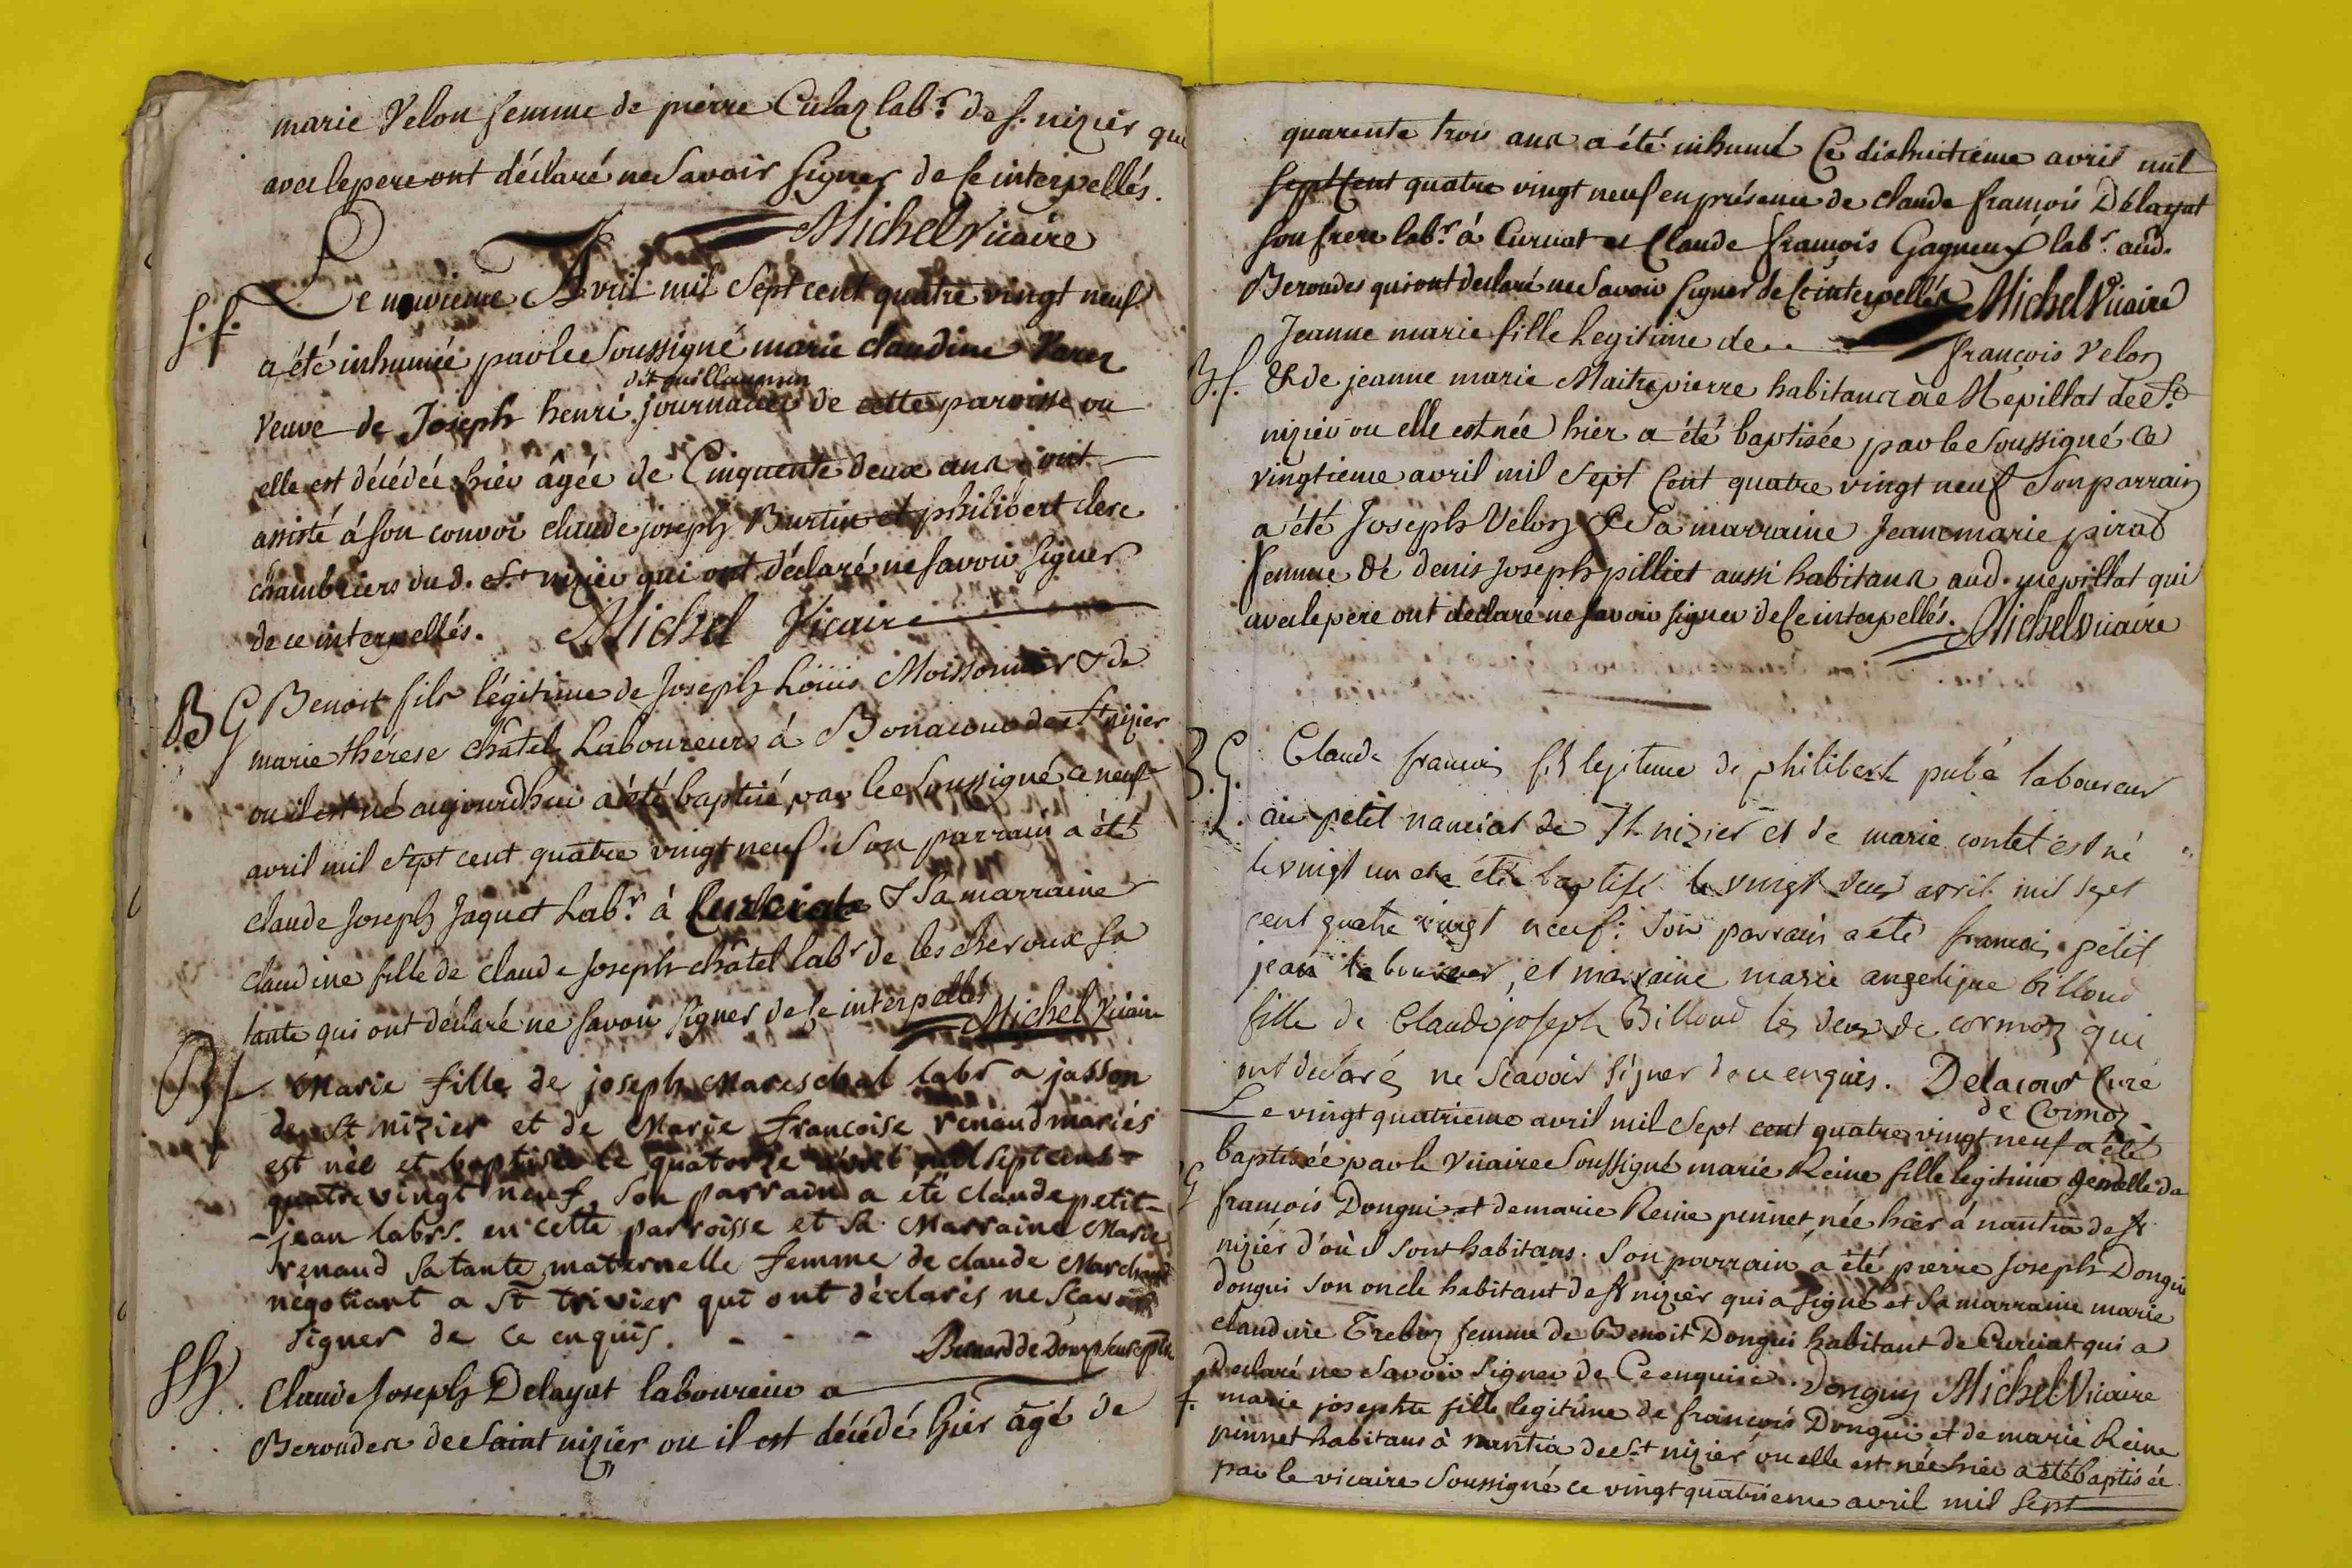 marie Velon femme de pierre Culaz labr. de s. nizier qui
avec le pere ont déclaré ne Savoir Signer de ce interpellés.
Michel Vicaire
s.f. Le neuvieme Avril mil Sept cent quatre vingt neuf
a été inhumée par le Soussigné marie claudine
dit guillaumin
veuve de Joseph henri journalier de cette paroisse ou
elle est décédée hier âgée de Cinquente deux ans, ont
assisté à son convoi claude joseph Burtin et philibert clerc
chambriers du d. St nizier qui ont déclaré ne savoir Signer
de ce interpellés. Michel Vicaire
B G Benoit fils légitime de Joseph Louis Moissonnier & de
marie thérese châtel Laboureurs à de St nizier
ou il est né aujourdhui a été baptisé par le Soussigné ce neuf
avril mil Sept cent quatre vingt neuf. Son parrain a été
claude Joseph Jaquet Labr. à & Sa marraine
claudine fille de claude Joseph châtel labr de lescheroux sa
tante qui ont déclaré ne savoir Signer de ce interpellés Michel Vicaire
B f Marie fille de joseph Mareschal labr a jasson
de St nizier et de Marie francoise renaud mariés
est née et baptisée le quatorze avril mil sept cent
quatre vingt neuf. Son parrain a été claude petit-
-jean labrs. en cette parroisse et sa Marraine Marie
renaud sa tante maternelle femme de claude Marchand
négotiant a St trivier qui ont déclarés ne Scavoir
signer de ce enquis. - - -
Claude Joseph Delayat laboureur a
Beroudes de Saint nizier ou il est décédé hier âgé de
quarente trois ans a été inhumé Ce dishuitieme avril mil
sept Cent quatre vingt neuf en présence de claude françois Délayat
son frere labr. à Curciat et Claude françois Gagneux labr. aud.
Beroudes qui ont déclaré ne Savoir Signer de Ce interpellés Michel Vicaire
Jeanne marie fille Legitime de.. françois Velon
B.f. & de jeanne marie Maitrepierre habitans à Mépillat de St
nizier ou elle est née hier a été baptisée par le Soussigné Ce
vingtieme avril mil Sept Cent quatre vingt neuf Son parrain
a été Joseph Velon & Sa marraine Jeanemarie pirat
femme de denis Joseph pilliet aussi habitans aud. mepillat qui
avec le pere ont déclaré ne Savoir signer de Ce interpellés. Michel Vicaire
B.G. Claude francois fils legitime de philibert pubé laboureur
au petit nanciat de St nizier et de marie contet est né
le vingt un et a été baptisé le vingt deux avril mil sept
cent quatre vingt neuf: Son parrain a été francois petit
jean laboureur, et marraine marie angelique billoud
fille de Claude joseph Billoud les deux de cormoz qui
ont déclarés ne Scavoir signer de ce enquis. Delacour Curé
de Cormoz
Le vingt quatrieme avril mil Sept cent quatre vingt neuf a été
baptisée par le Vicaire Soussigné marie Reine fille legitime gemelle de
françois Dongui et de marie Reine pinnet née hier à nantia de St
nizier d'où il sont habitans. Son parrain a été pierre Joseph Dongui
dongui son oncle habitant de St nizier qui a signé et Sa marraine marie
claudine Treboz femme de Benoit Dongui habitant de Curciat qui a
Declaré ne Savoir Signer de Ce enquise. Donguy Michel Vicaire
f. marie josephte fille legitime de françois Dongui et de marie Reine
pinnet habitans à nantia de St nizier ou elle est née hier a été baptisée
par le vicaire Soussigné ce vingt quatrieme avril mil Sept